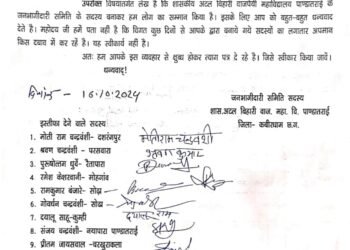 उपरोक्त विषयांतर्गत लेख है कि शासकीय अटल बिहारी बाजपेयी महाविद्यालय पाण्डातराई के
जनभागीदारी समिति के सदस्य बनाकर हम लोग का सम्मान किया है। इसके लिए आप को बहुत-बहुत धन्यवाद
देते है। महोदय जी हमें पता नहीं है कि विगत कुछ दिनों से आपके द्वारा बनाये गये सदस्यों का लगातार अपमान
किस दबाव में कर रहे है। यह स्वीकार्य नहीं है।
अतः हम आपके इस व्यवहार से क्षुब्ध होकर त्याग पत्र दे रहे है। जिसे स्वीकार किया जावें।
धन्यवाद!
दिनांक - 16/10/2024
जनभागीदारी समिति सदस्य
शास.अटल बिहारी वाज. महा. वि. पाण्डातराई
जिला- कबीरधाम छ.ग.
इस्तीफा देने वाले सदस्य
1- मोती राम चन्द्रवंशी- दशरंगपुर मोतीराम चन्द्रवंशी
2- श्रवण चन्द्रवंशी- परसवारा श्रवण कुमार
3- पुरुषोत्तम धुर्वे- रैतापारा
4- रमेश केशरवानी- मोहगांव
5- रामकुमार बंजारे- सोढ़ा
6- गोवर्धन चन्द्रवंशी- सोढ़ा
7- दयालू साहू-कुम्ही दयालु राम
8- संजय चन्द्रवंशी- नयापारा पाण्डातराई
प्रीतम जायसवाल-बरखुराकला